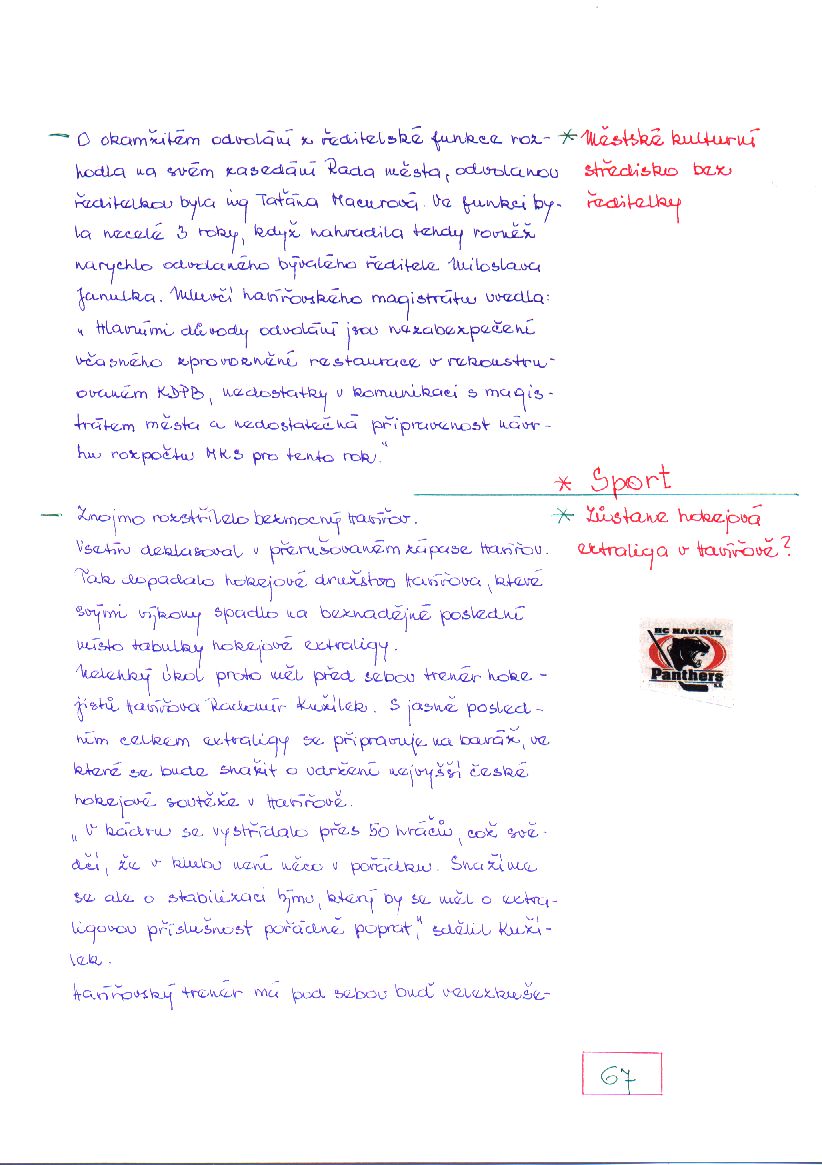 – O okamžitém odvolání z ředitelské funkce roz-
hodla na svém zasedání Rada města, odvolanou
ředitelkou byla ing Taťána Macurová. Ve funkci by-
la necelé 3 roky, když nahradila tehdy rovněž
narychlo odvolaného bývalého ředitele Miloslava
Janulka. Mluvčí havířovského magistrátu uvedla:
„Hlavními důvody odvolání jsou nezabezpečení
včasného zprovoznění restaurace v rekonstru-
ovaném KDPB, nedostatky v komunikaci s magis-
trátem města a nedostatečná připravenost návr-
hu rozpočtu MKS pro tento rok."
* Městské kulturní
středisko bez
ředitelky
* Sport
– Znojmo rozstřílelo bezmocný Havířov.
Vsetín deklasoval v přerušovaném zápase Havířov.
Tak dopadalo hokejové družstvo Havířova, které
svými výkony spadlo na beznadějně poslední
místo tabulky hokejové extraligy.
Nelehký úkol proto měl před sebou trenér hoke-
jistů Havířova Radomír Kužílek. S jasně posled-
ním celkem extraligy se připravuje na baráž, ve
které se bude snažit o udržení nejvyšší české
hokejové soutěže v Havířově.
„V kádru se vystřídalo přes 50 hráčů, což svě-
dčí, že v klubu není něco v pořádku. Snažíme
se ale o stabilizaci týmu, který by se měl o extra-
ligovou příslušnost pořádně poprat," sdělil Kuží-
lek.
Havířovský trenér má pod sebou buď velezkuše-
* Zůstane hokejová
extraliga v Havířově?
HC HAVÍŘOV
Panthers
67